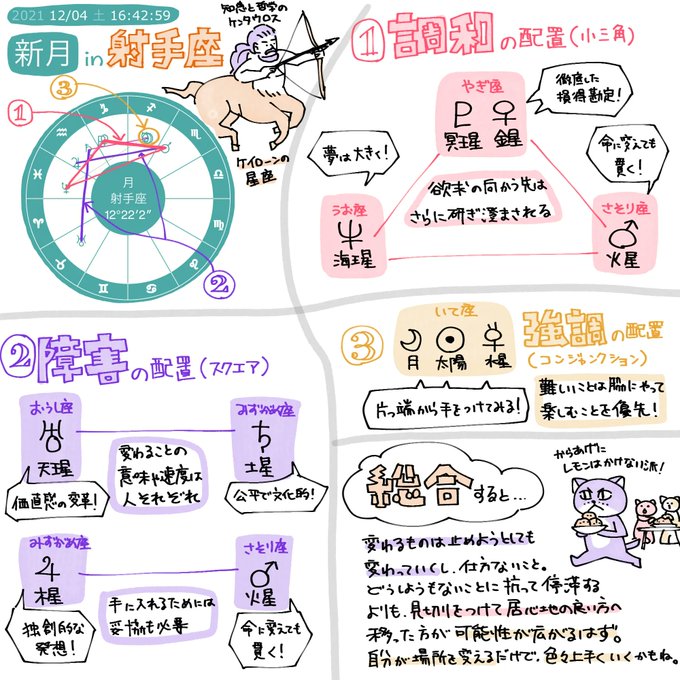 2021 12/04 土 16:42:59
新月 in 射手座
知恵と哲学の
ケンタウロス
ケイローンの
星座
①
③
②
月
射手座
12°22'2"
① 調和の配置(小三角)
やぎ座
冥王星 金星
徹底した
損得勘定!
夢は大きく!
命に変えても
貫く!
欲求の向かう先は
さらに研ぎ澄まされる
うお座
海王星
さそり座
火星
② 障害の配置(スクエア)
おうし座
天王星
価値感の変革!
変わることの
意味や速度は
人それぞれ
みずがめ座
土星
公平で文化的!
みずがめ座
木星
独創的な
発想!
手に入れるためには
妥協も必要
さそり座
火星
命に変えても
貫く!
③
いて座
月 太陽 水星
強調の配置
(コンジャンクション)
片っ端から手をつけてみる!
難しいことは脇にやって
楽しむことを優先!
総合すると…
からあげに
レモンはかけない派!
変わるものは止めようとしても
変わっていくし、仕方ないこと。
どうしようもないことに抗って停滞する
よりも、見切りをつけて居心地の良い方へ
移った方が可能性が広がるはず。
自分が場所を変えるだけで、色々上手くいくかもね。